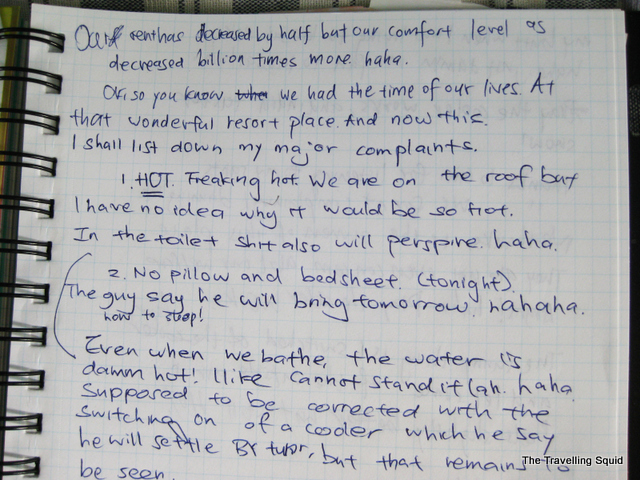 Our rent has decreased by half but our comfort level as
decreased billion times more. haha.
Ok, so you know we had the time of our lives. At
that wonderful resort place. And now this.
I shall list down my major complaints.
1. HOT. Freaking hot. We are on the roof but
I have no idea why it would be so hot.
In the toilet shit also will perspire. haha.
2. No pillow and bedsheet. (tonight).
The guy say he will bring tomorrow. hahaha.
how to sleep!
Even when we bathe, the water is
damm hot! like cannot stand it lah. haha
Supposed to be corrected with the
switching on of a cooler which he say
he will settle BY tmr, but that remains to
be seen.
The Travelling Squid